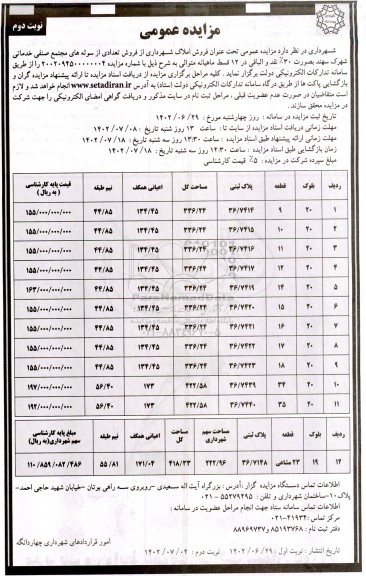 نوبت دوم
مزایده عمومی
شهرداری در نظر دارد مزایده عمومی تحت عنوان فروش املاک شهرداری از فروش تعدادی از سوله های مجتمع صنفی خدماتی
شهرک سهند بصورت ۳۰٪ نقد و الباقی در ۱۲ قسط ماهیانه متوالی به شرح ذیل با شماره مزایده ۲۰۰۲۰۹۴۵۰۰۰۰۰۰۴ را از طریق
سامانه تدارکات الکترونیکی دولت برگزار نماید . کلیه مراحل برگزاری مزایده از دریافت اسناد مزایده تا ارائه پیشنهاد مزایده گران و
بازگشایی پاکت ها از طریق درگاه سامانه تدارکات الکترونیکی دولت (ستاد) به آدرس www.setadiran.ir انجام خواهد شد و لازم
است متقاضیان در صورت عدم عضویت قبلی ، مراحل ثبت نام در سایت مذکور و دریافت گواهی امضای الکترونیکی را جهت شرکت
در مزایده محقق سازند .
تاریخ ثبت مزایده در سامانه : روز چهارشنبه مورخ ۱۴۰۲/۰۶/۲۹
مهلت زمانی دریافت اسناد مزایده از سایت تا : ساعت ۱۳ روز شنبه تاریخ ۱۴۰۲/۰۷/۰۸
مهلت زمانی ارائه پیشنهاد طبق اسناد مزایده : ساعت ۱۳:۳۰ روز سه شنبه تاریخ ۱۴۰۲/۰۷/۱۸
زمان بازگشایی طبق اسناد مزایده : ساعت ۱۴:۳۰ روز سه شنبه تاریخ ۱۴۰۲/۰۷/۱۸
مبلغ سپرده شرکت در مزایده : ۵٪ قیمت کارشناسی
ردیف بلوک قطعه پلاک ثبتی مساحت کل اعیانی همکف نیم طبقه قیمت پایه کارشناسی (به ریال)
۱ ۲۰ ۹ ۳۶/۷۴۱۴ ۳۳۶/۲۴ ۱۳۴/۴۵ ۴۴/۸۵ ۱۵۵/۰۰۰/۰۰۰/۰۰۰
۲ ۲۰ ۱۰ ۳۶/۷۴۱۵ ۳۳۶/۲۴ ۱۳۴/۴۵ ۴۴/۸۵ ۱۵۵/۰۰۰/۰۰۰/۰۰۰
۳ ۲۰ ۱۱ ۳۶/۷۴۱۶ ۳۳۶/۲۴ ۱۳۴/۴۵ ۴۴/۸۵ ۱۵۵/۰۰۰/۰۰۰/۰۰۰
۴ ۲۰ ۱۲ ۳۶/۷۴۱۷ ۳۳۶/۲۴ ۱۳۴/۴۵ ۴۴/۸۵ ۱۵۵/۰۰۰/۰۰۰/۰۰۰
۵ ۲۰ ۱۴ ۳۶/۷۴۱۹ ۳۳۶/۲۴ ۱۳۴/۴۵ ۴۴/۸۵ ۱۶۳/۰۰۰/۰۰۰/۰۰۰
۶ ۲۰ ۱۵ ۳۶/۷۴۲۰ ۳۳۶/۲۴ ۱۳۴/۴۵ ۴۴/۸۵ ۱۵۵/۰۰۰/۰۰۰/۰۰۰
۷ ۲۰ ۱۶ ۳۶/۷۴۲۱ ۳۳۶/۲۴ ۱۳۴/۴۵ ۴۴/۸۵ ۱۵۵/۰۰۰/۰۰۰/۰۰۰
۸ ۲۰ ۱۷ ۳۶/۷۴۲۲ ۳۳۶/۲۴ ۱۳۴/۴۵ ۴۴/۸۵ ۱۵۵/۰۰۰/۰۰۰/۰۰۰
۹ ۲۰ ۱۸ ۳۶/۷۴۲۳ ۳۳۶/۲۴ ۱۳۴/۴۵ ۴۴/۸۵ ۱۵۵/۰۰۰/۰۰۰/۰۰۰
۱۰ ۲۰ ۳۴ ۳۶/۷۴۳۹ ۴۲۲/۵۸ ۱۷۳ ۵۶/۴۰ ۱۹۷/۰۰۰/۰۰۰/۰۰۰
۱۱ ۲۰ ۳۵ ۳۶/۷۴۴۰ ۴۲۲/۵۸ ۱۷۳ ۵۶/۴۰ ۱۹۲/۰۰۰/۰۰۰/۰۰۰
ردیف بلوک قطعه پلاک ثبتی مساحت سهم شهرداری مساحت کل اعیانی همکف نیم طبقه مبلغ پایه کارشناسی سهم شهرداری(به ریال)
۱۲ ۱۹ ۲۳ مشاعی ۳۶/۷۱۴۸ ۲۲۲/۹۶ ۴۱۸/۲۳ ۱۷۱/۰۴ ۵۵/۸۱ ۱۱۰/۸۵۹/۰۸۲/۴۸۶
اطلاعات تماس دستگاه مزایده گزار :آدرس : بزرگراه آیت اله سعیدی -روبروی سه راهی بوتان -خیابان شهید حاجی احمد-
پلاک۱۰-ساختمان شهرداری و تلفن : ۵۵۲۷۹۲۹۵ - ۰۲۱
اطلاعات تماس سامانه ستاد جهت انجام مراحل عضویت در سامانه :
مرکز تماس :۴۱۹۳۴-۰۲۱
دفتر ثبت نام : ۸۵۱۹۳۷۶۸ و ۸۸۹۶۹۷۳۷
امور قراردادهای شهرداری چهاردانگه
تاریخ انتشار : نوبت اول : ۱۴۰۲/۰۶/۲۹ نوبت دوم : ۱۴۰۲/۰۷/۰۴